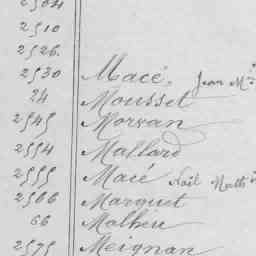 2504
2510
2526.
2530 Macé, Jean M.
24 Mousset
2545 Morvan
2554 Mallard
2555 Macé Noël Math
2566 Marquet
66 Mathieu
2575 Meignan